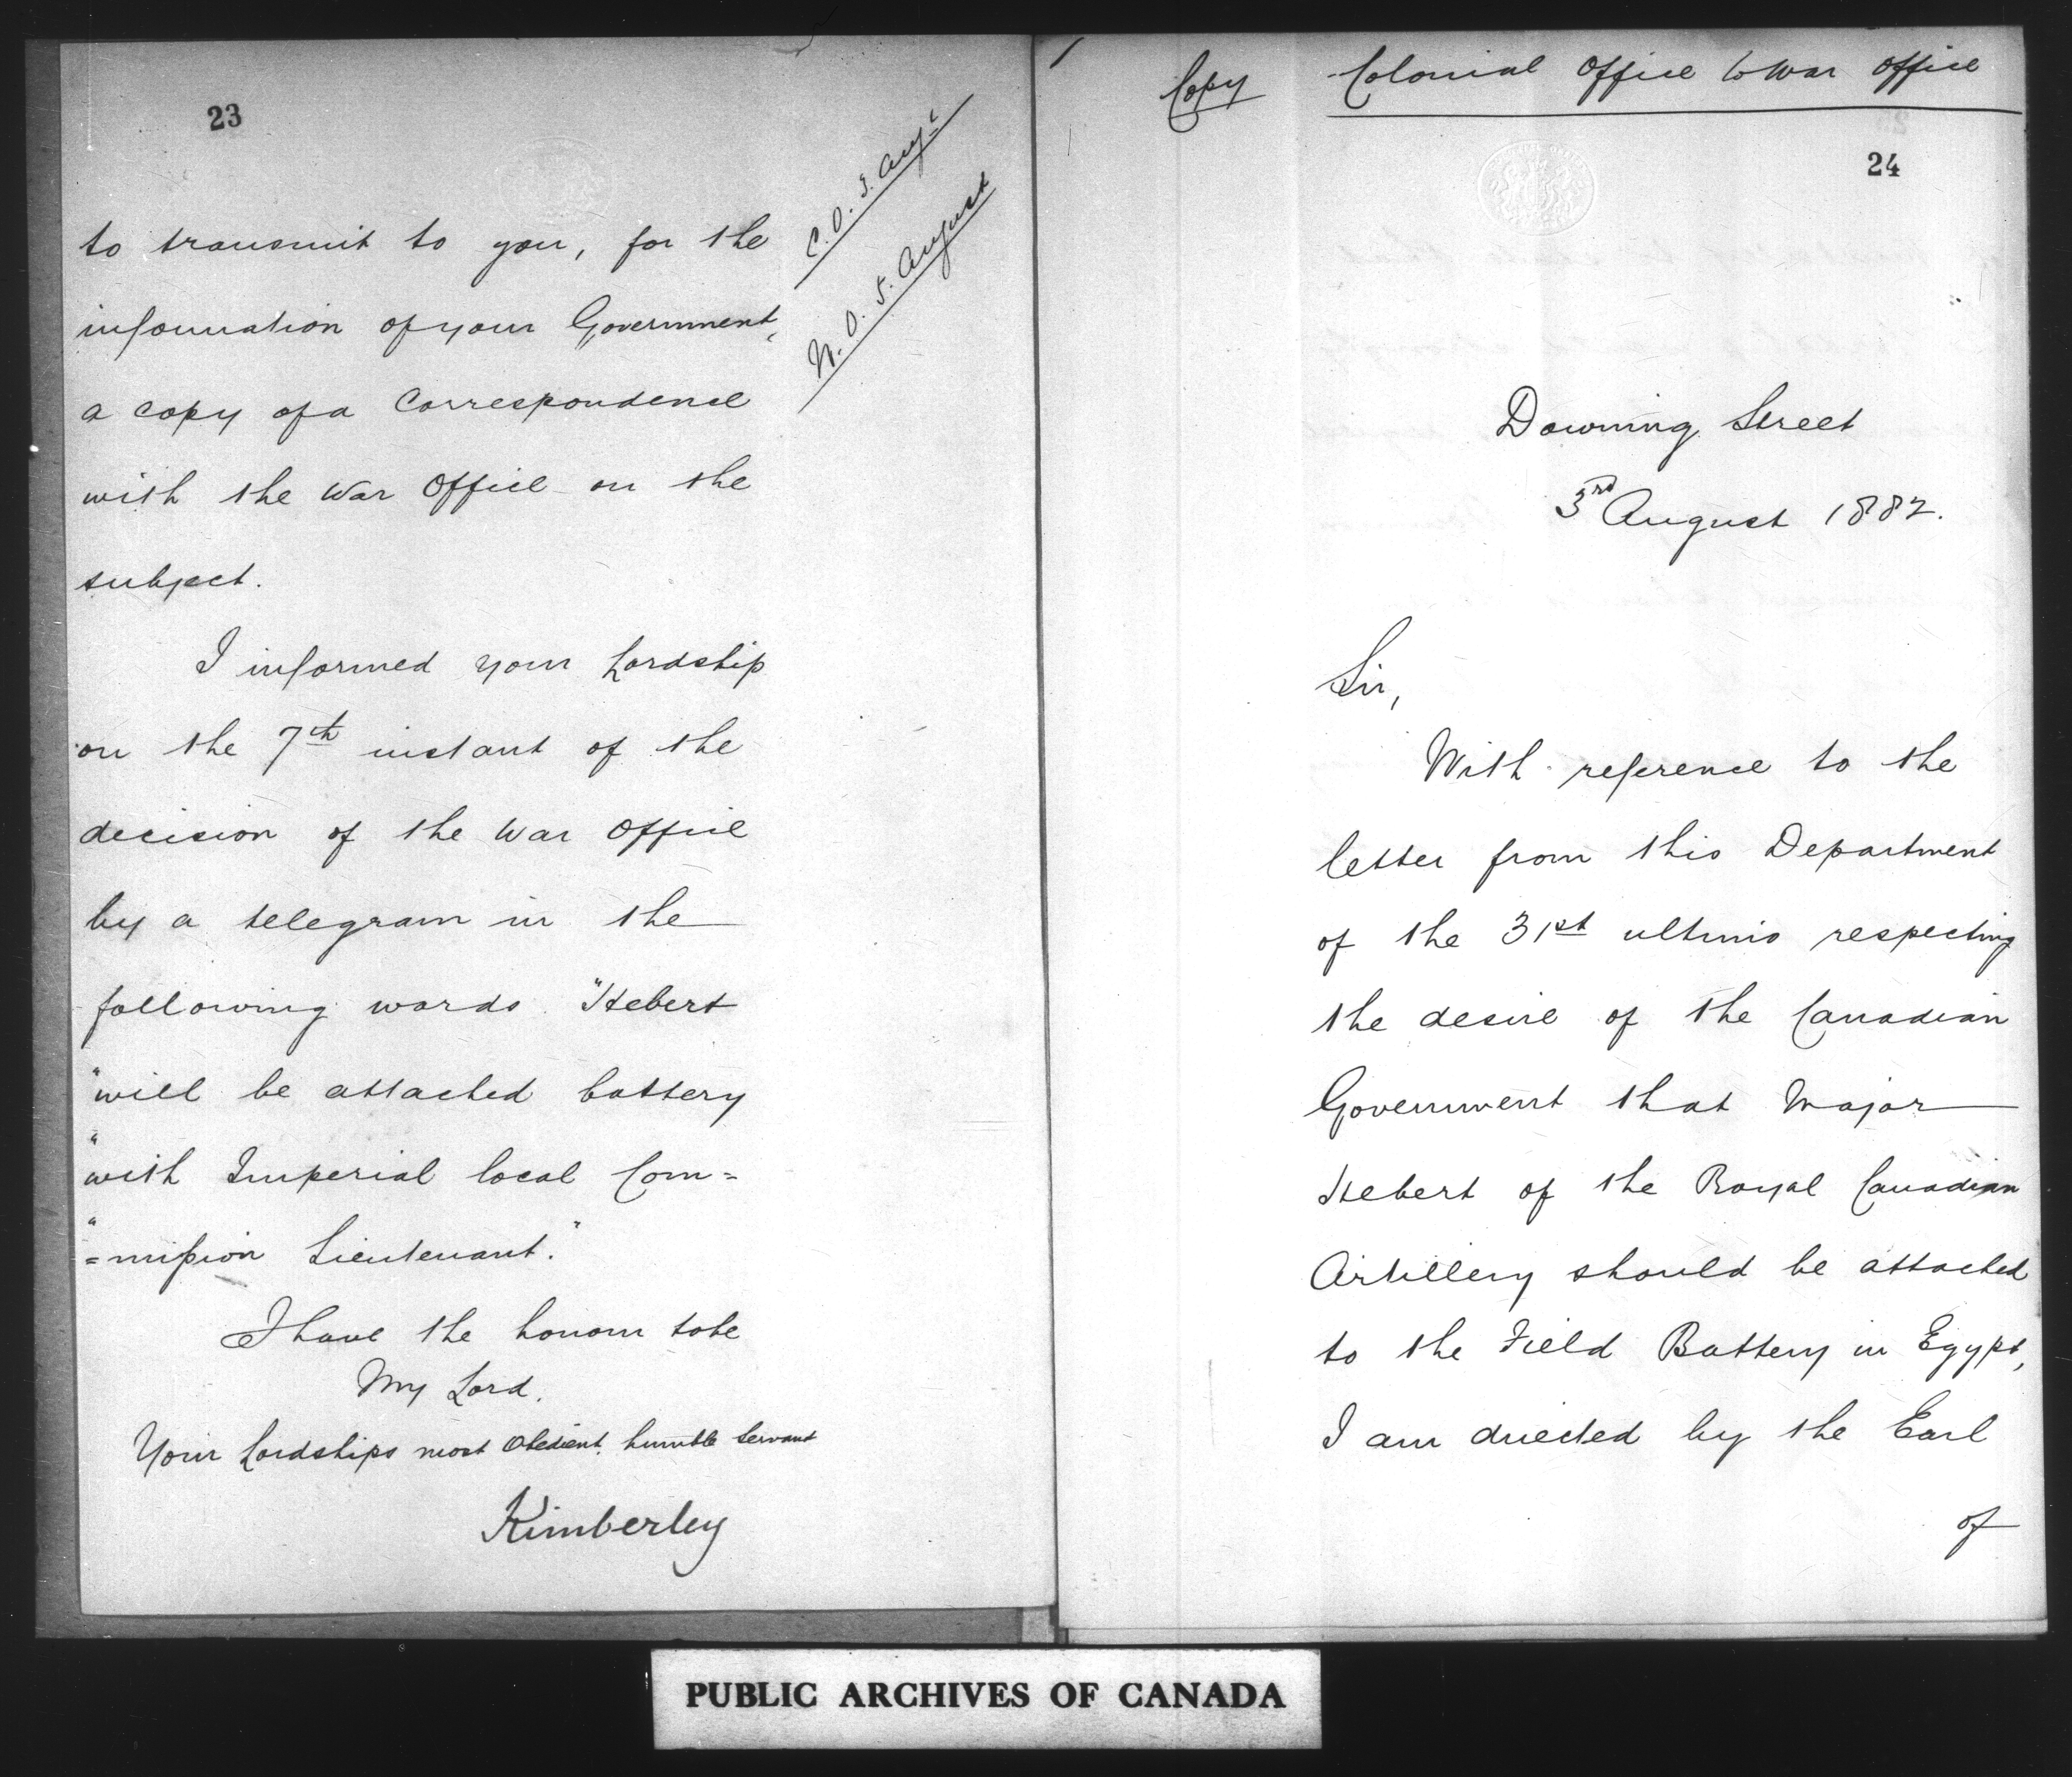 23
C.O. 3. Augt
W.O. 5. August
to transmit to you, for the
information of your Government,
a copy of a Correspondence
with the War Office on the
subject.
I informed your Lordship
on the 7th instant of the
decision of the War Office
by a telegram in the
following words "Hebert
"will be attached battery
"with Imperial local Com=
"=mission Lieutenant."
I have the honour to be
My Lord,
Your Lordships most Obedient humble Servant
Kimberley
Copy
Colonial Office to War Office
24
Downing Street
3rd August 1882.
Sir,
With reference to the
letter from this Department
of the 31st ultimo respecting
the desire of the Canadian
Government that Major
Hebert of the Royal Canadian
Artillery should be attached
to the Field Battery in Egypt,
I am directed by the Earl
of
PUBLIC ARCHIVES OF CANADA